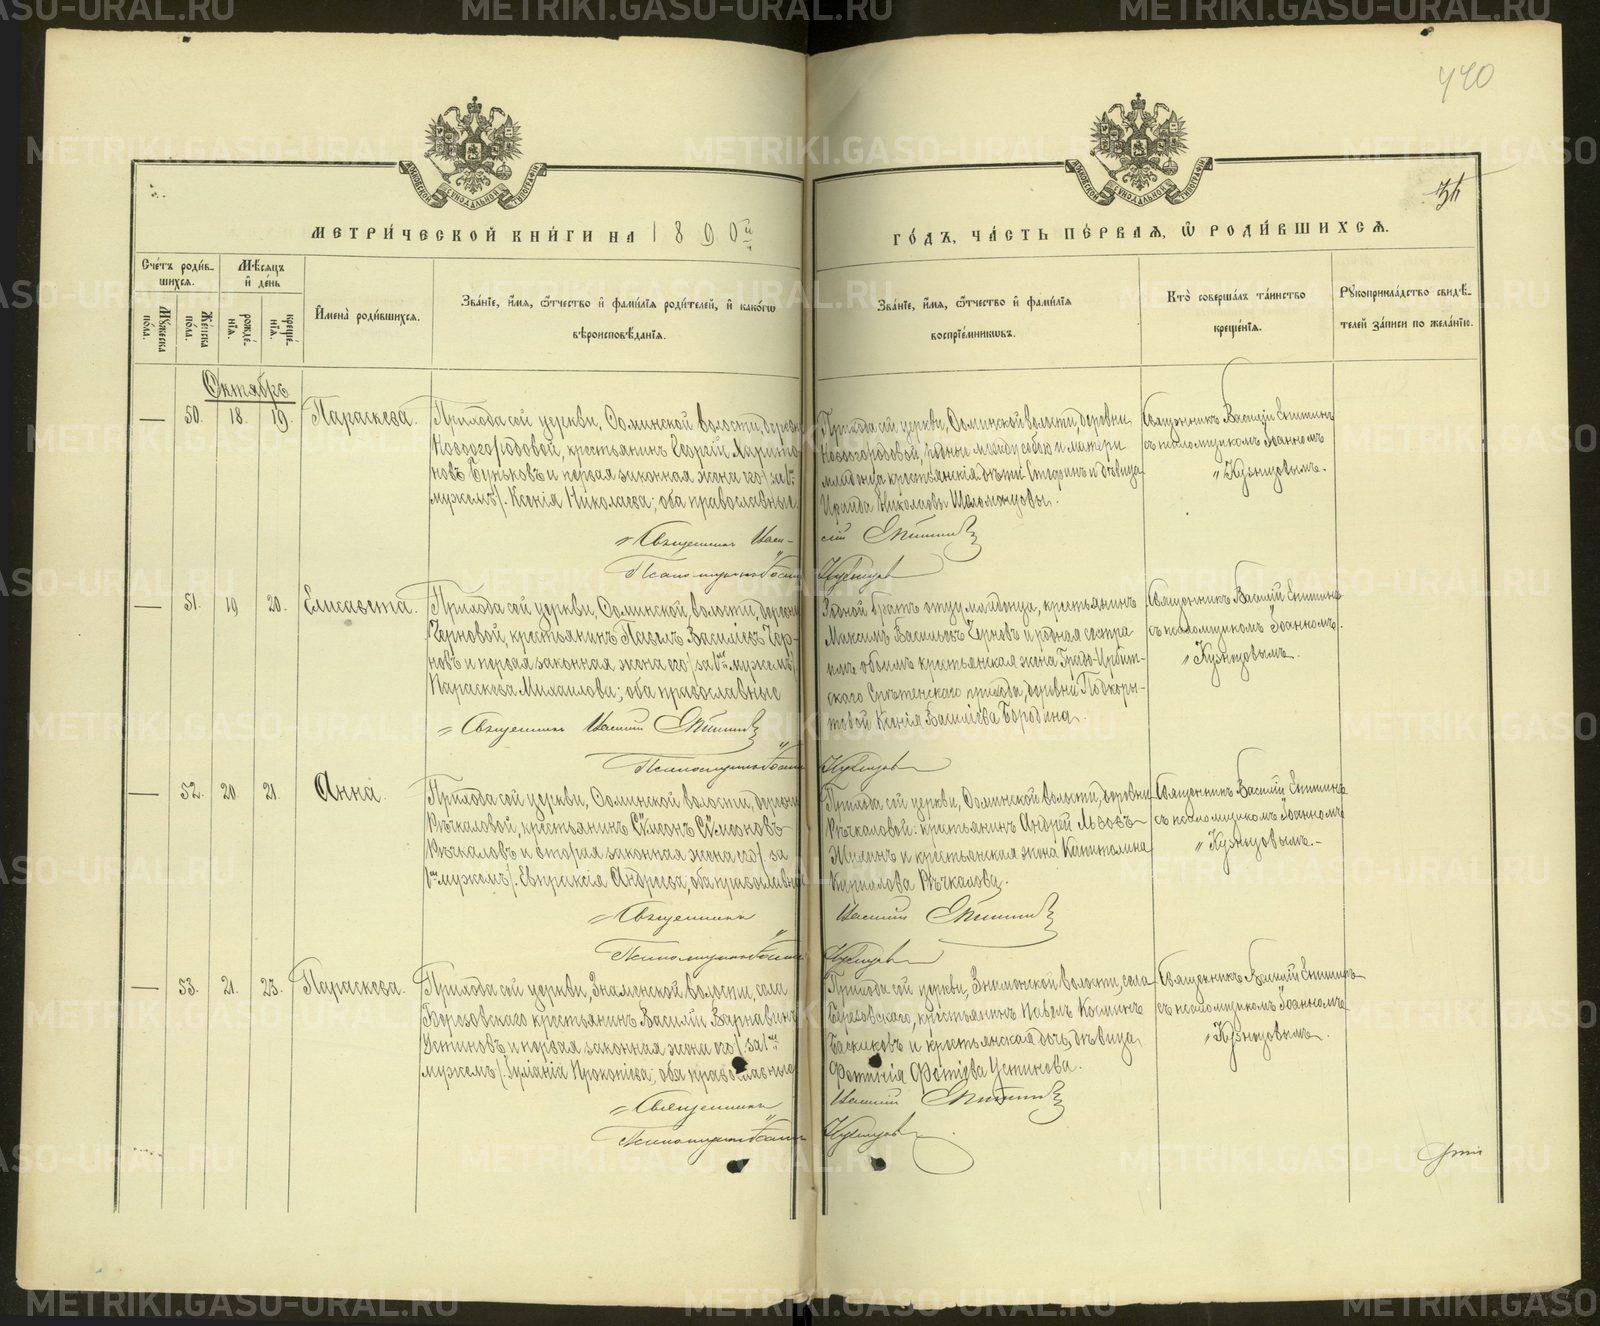 440
34
МЕТРИ́ЧЕСКОЙ КНИ́ГИ НА 1890й
ГО́ДЪ, ЧА́СТЬ ПЕ́РВАЯ, Ѡ РОДИ́ВШИХСЯ.
Сче́тъ роди́в-
шихся.
Му́жеска
по́ла.
Же́нска
по́ла.
Мѣ́сяцъ
и́ де́нь
рожде́-
нія.
креще́-
нія.
И́мена̀ роди́вшихся.
Зва́ніе, и́мя, ѻ҆́тчество и́ фами́лія роди́телей, и́ како́гѡ
вѣроисповѣ́данія.
Зва́ніе, и́мя, ѻ҆́тчество и́ фами́лія
воспріе́мниковъ.
Кто̀ соверша́лъ та́инство
креще́нія.
Рукоприкла́дство свидѣ́-
телей за́писи по жела́нію.
Октябрь
— 50. 18. 19. Параскева.
Прихода сей церкви, Соминской волости, деревни
Новоогородовой, крестьянинъ Георгій Харито-
новъ Буньковъ и первая законная жена его (за 1мъ
мужемъ). Ксенія Николаева; оба православные
Прихода сей церкви, Соминской волости, деревни
Новоогородовой, родные между собою и матери
младенца крестьянскія дѣти Стефанъ и дѣвица
Ираида Николаевы
Священникъ Василій
съ псаломщикомъ Іоанномъ
Кузнецовымъ.
Священникъ Васи-
лій
Псаломщикъ Іоаннъ
Кузнецовъ
— 51. 19 20. Елисавета.
Прихода сей церкви, Соминской волости, деревни
Черновой, крестьянинъ Павелъ Василіевъ Чер-
новъ и первая законная жена его (за 1мъ мужемъ)
Параскева Михаилова; оба православные
Родной братъ отцу младенца, крестьянинъ
Максимъ Васильевъ Черновъ и родная сестра
имъ обоимъ крестьянская жена Градо-Ирбит-
скаго Срѣтенскаго прихода, деревни Подкоры-
товой Ксенія Василіева Бородина.
Священникъ Василій
съ псаломщикомъ Іоанномъ
Кузнецовымъ.
Священникъ Василій
Псаломщикъ Іоаннъ
Кузнецовъ
— 52. 20. 21. Анна.
Прихода сей церкви, Соминской волости, деревни
Рѣчкаловой, крестьянинъ Сѵмеонъ Сѵмеоновъ
Рѣчкаловъ и вторая законная жена его (за
1мъ мужемъ). Евпраксія Андреева, оба православные
Прихода сей церкви, Соминской волости, деревни
Рѣчкаловой: крестьянинъ Андрей Львовъ
Жилинъ и крестьянская жена Капитолина
Кириллова Рѣчкалова.
Священникъ Василій
съ псаломщикомъ Іоанномъ
Кузнецовымъ.
Священникъ
Василій
Псаломщикъ Іоаннъ
Кузнецовъ
— 53. 21. 23. Параскева.
Прихода сей церкви, Знаменской волости, села
Березовскаго крестьянинъ Василій Варнавинъ
Устиновъ и первая законная жена его (за 1мъ
мужемъ). Ирманія Прокопіева; оба православные
Прихода сей церкви, Знаменской волости, села
Березовскаго, крестьянинъ Павелъ Косминъ
Баскиковъ и крестьянская дочь, дѣвица
Фотинія Фотіева Устинова.
Священникъ Василій
съ псаломщикомъ Іоанномъ
Кузнецовымъ.
Священникъ
Василій
Псаломщикъ Іоаннъ
Кузнецовъ
METRIKI.GASO-URAL.RU